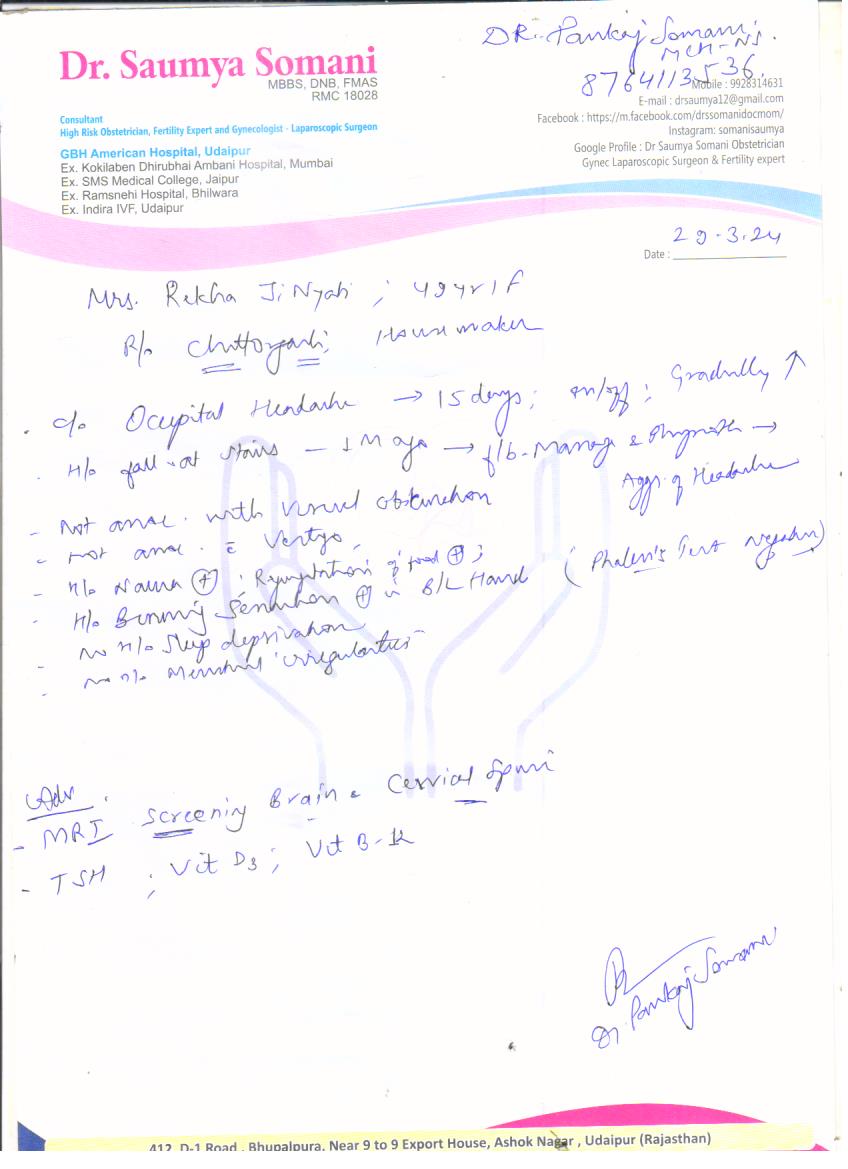 DR. Pankaj Somani
MCH-NS.
8764113536.
Dr. Saumya Somani
MBBS, DNB, FMAS
RMC 18028
Mobile : 9928314631
E-mail : drsaumya12@gmail.com
Facebook : https://m.facebook.com/drssomanidocmom/
Instagram: somanisaumya
Google Profile : Dr Saumya Somani Obstetrician
Gynec Laparoscopic Surgeon & Fertility expert
Consultant
High Risk Obstetrician, Fertility Expert and Gynecologist - Laparoscopic Surgeon
GBH American Hospital, Udaipur
Ex. Kokilaben Dhirubhai Ambani Hospital, Mumbai
Ex. SMS Medical College, Jaipur
Ex. Ramsnehi Hospital, Bhilwara
Ex. Indira IVF, Udaipur
Date : 29.3.24
Mrs. Rekha Ji Nyati ; 49yr/F
R/o Chittorgarh; Housemaker
. c/o Occipital Headache → 15 days; on/off ; Gradually ↑
. H/o fall at stairs - 1 M ago → f/b - Massage & →
Aggr. of Headache
- Not assoc. with Visual obstruction
- not assoc. c̄ Vertigo,
- H/o Nausea ⊕ ; Regurgitation of food ⊕ ;
- H/o Burning Sensation ⊕ in B/L Hand (Phalen's Test negative)
- no H/o Sleep deprivation
- no H/o Menstrual irregularities
Adv.
- MRI Screening Brain & Cervical Spine
- TSH ; Vit D3 ; Vit B-12
Dr. Pankaj Somani
412, D-1 Road, Bhupalpura, Near 9 to 9 Export House, Ashok Nagar , Udaipur (Rajasthan)